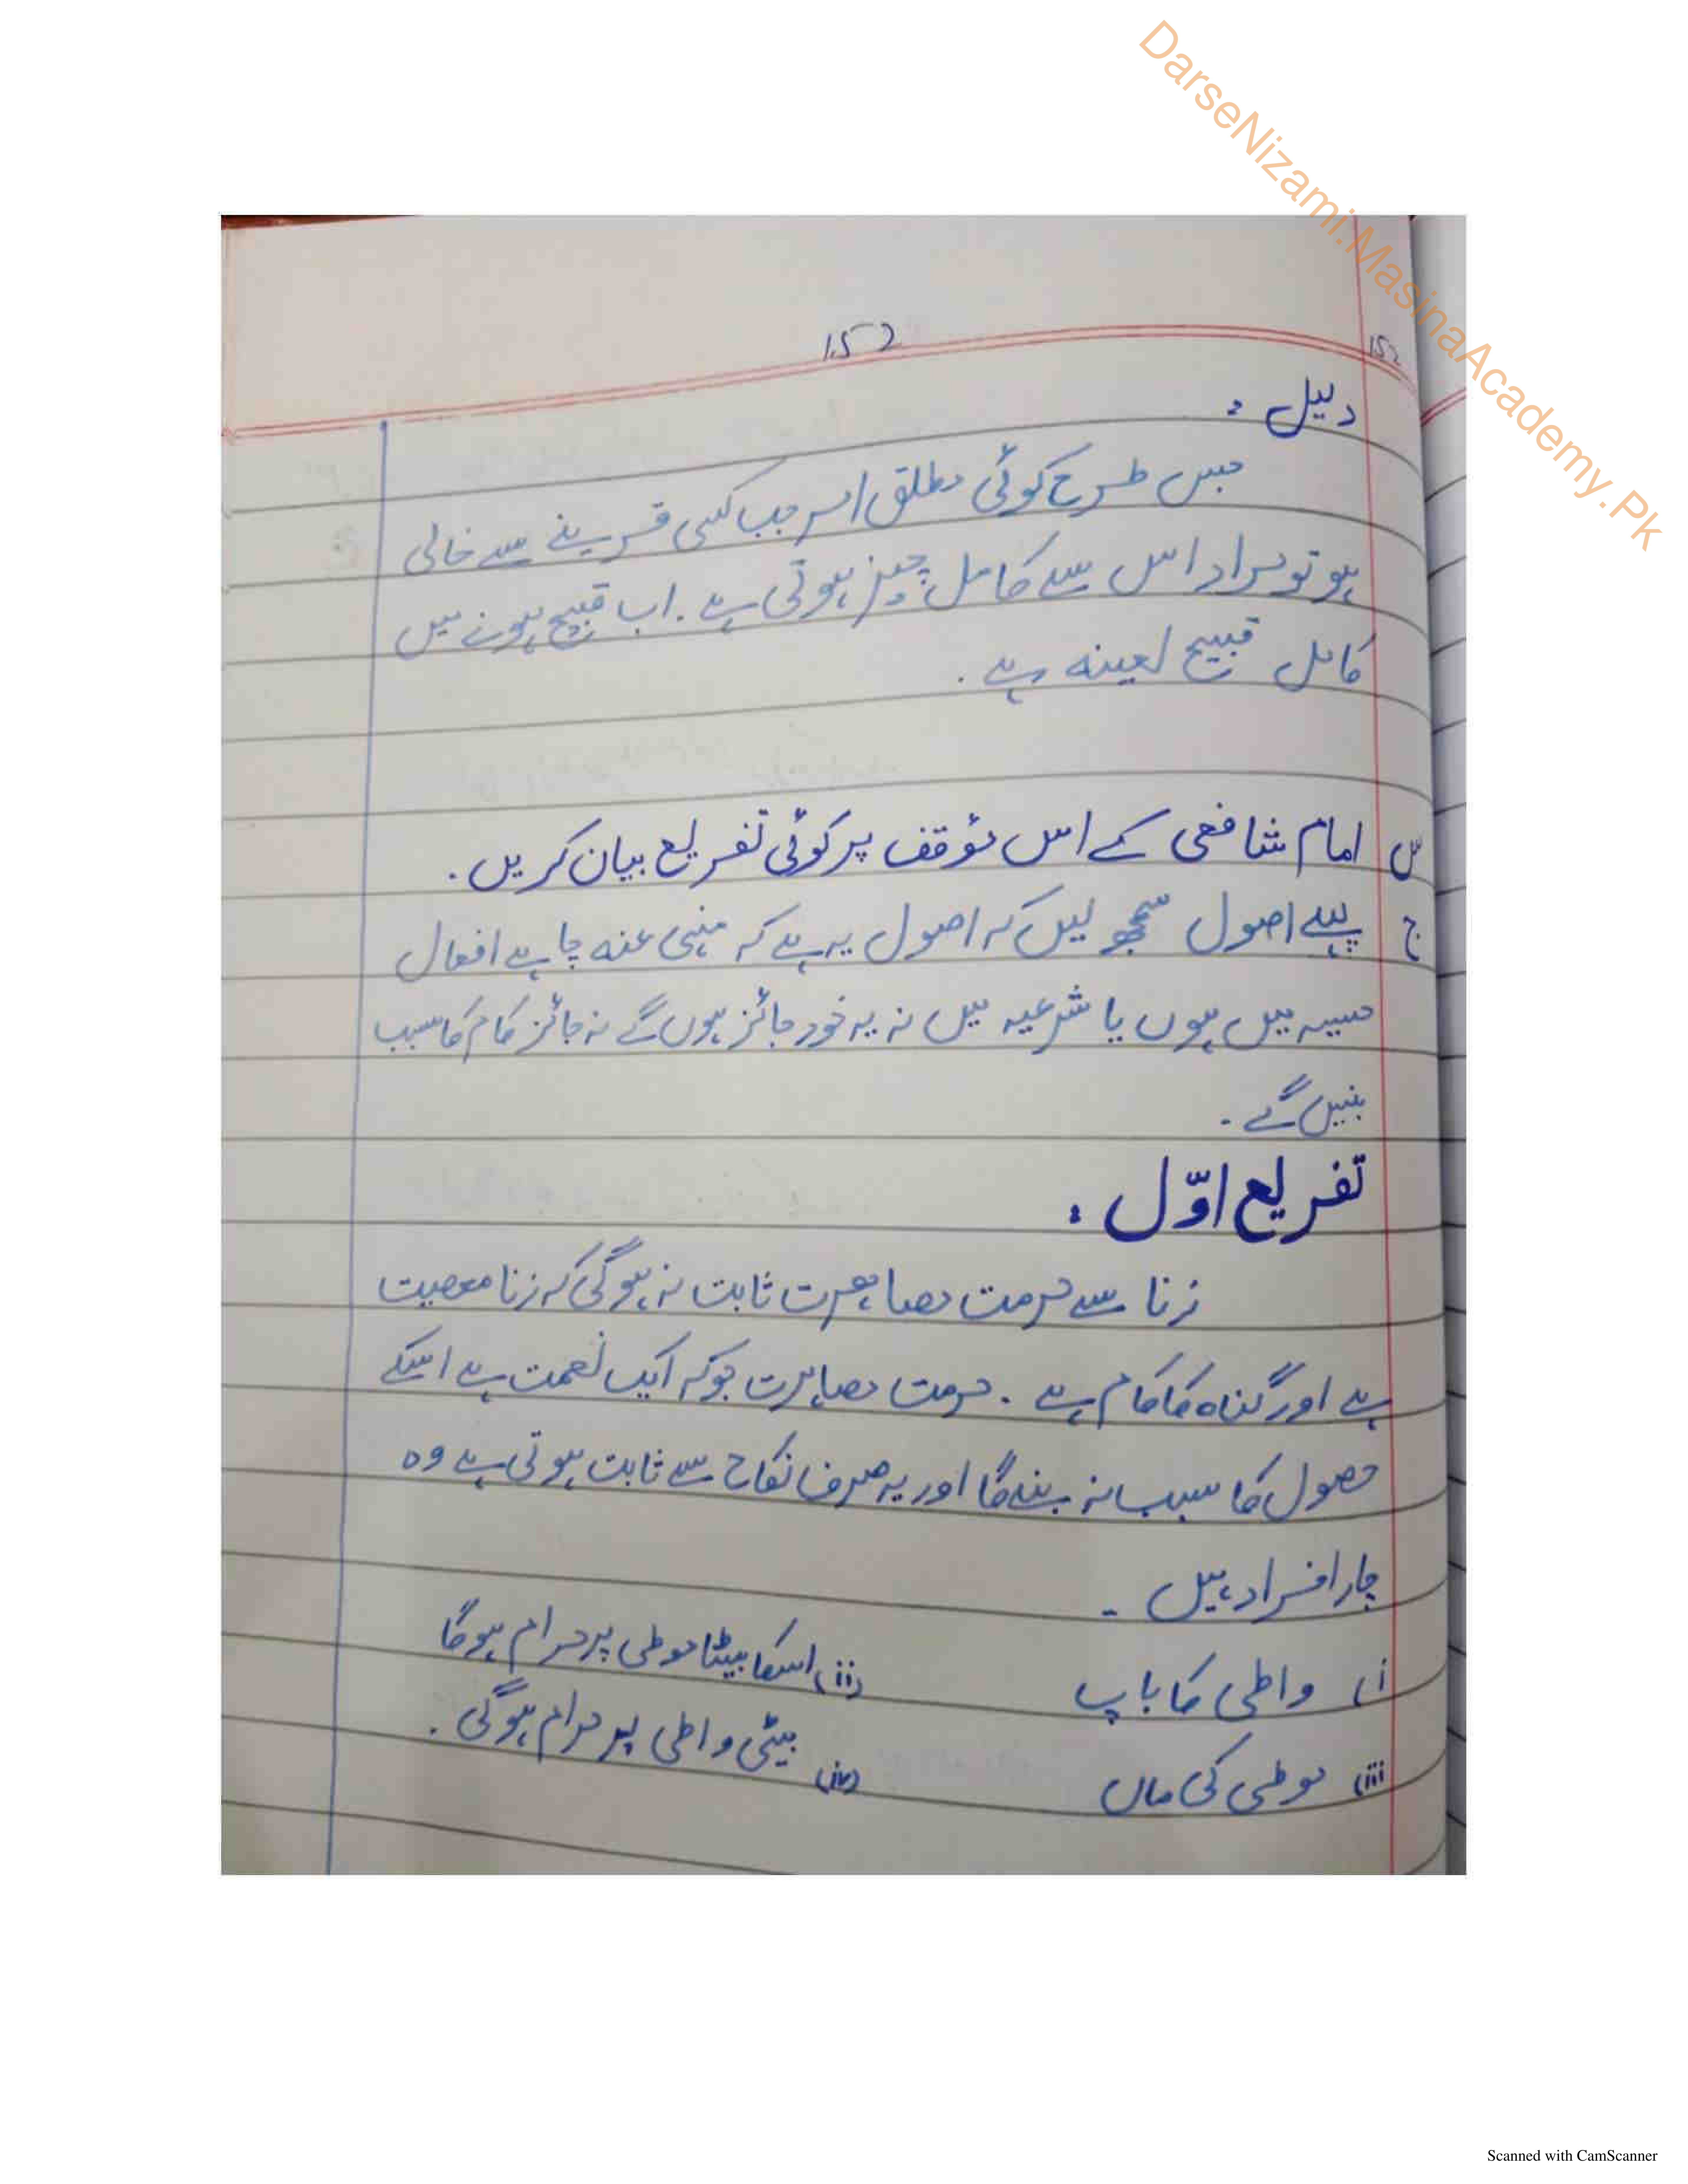 DarseNizami.MasinaAcademy.Pk
152
152
دلیل :
جس طرح کوئی مطلق امر جب کسی قرینے سے خالی
ہو تو مراد اس سے کامل چیز ہوتی ہے ۔ اب قبیح ہونے میں
کامل قبیح لعینہ ہے ۔
س امام شافعی کے اس مؤقف پر کوئی تفریع بیان کریں ۔
ج پہلے اصول سمجھ لیں کہ اصول یہ ہے کہ منہی عنہ چاہے افعال
حسیہ میں ہوں یا شرعیہ میں نہ یہ خود جائز ہوں گے نہ جائز کام کا سبب
بنیں گے ۔
تفریع اوّل :
زنا سے حرمت مصاہرت ثابت نہ ہوگی کہ زنا معصیت
ہے اور گناہ کا کام ہے ۔ حرمت مصاہرت جو کہ ایک نعمت ہے اسکے
حصول کا سبب نہ بنے گا اور یہ صرف نکاح سے ثابت ہوتی ہے وہ
چار افراد ہیں ۔
(i واطی کا باپ (ii) اسکا بیٹا موطی پر حرام ہوگا
(iii موطی کی ماں (iv) بیٹی واطی پر حرام ہوگی ۔
Scanned with CamScanner